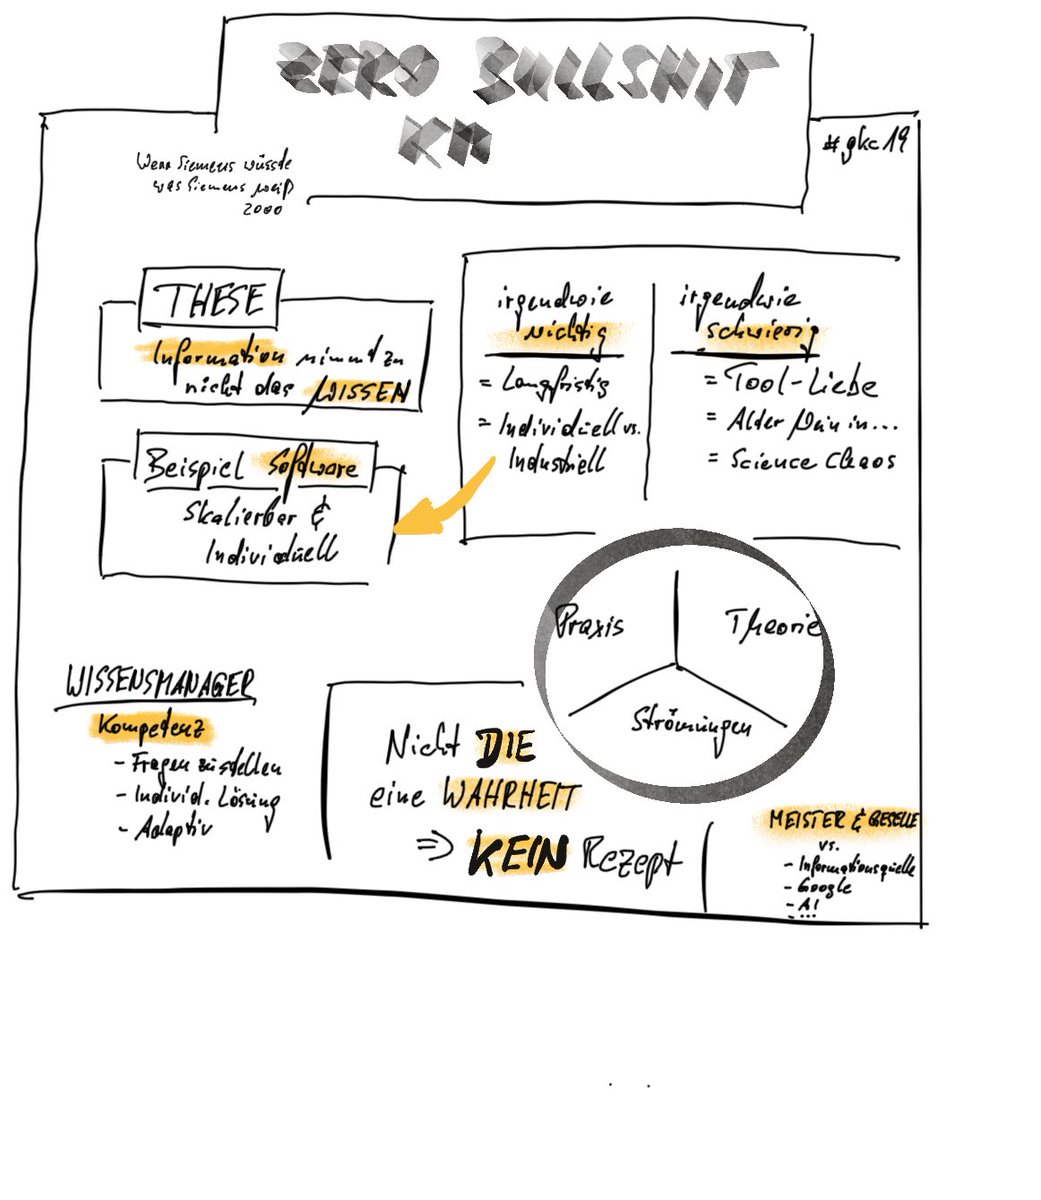 ZERO BULLSHIT
KM
#gkc19
Wenn Siemens wüsste
was Siemens weiß
2000
THESE
Information nimmt zu
nicht das WISSEN
irgendwie
wichtig
= Langfristig
= Individuell vs.
Industriell
irgendwie
schwierig
= Tool-Liebe
= Alter Wein in...
= Science Chaos
Beispiel Software
Skalierbar &
Individuell
Praxis
Theorie
Strömungen
WISSENSMANAGER
Kompetenz
- Fragen zu stellen
- Individ. Lösung
- Adaptiv
Nicht DIE
eine WAHRHEIT
=> KEIN Rezept
MEISTER & GESELLE
vs.
- Informationsquelle
- Google
- AI
- ...